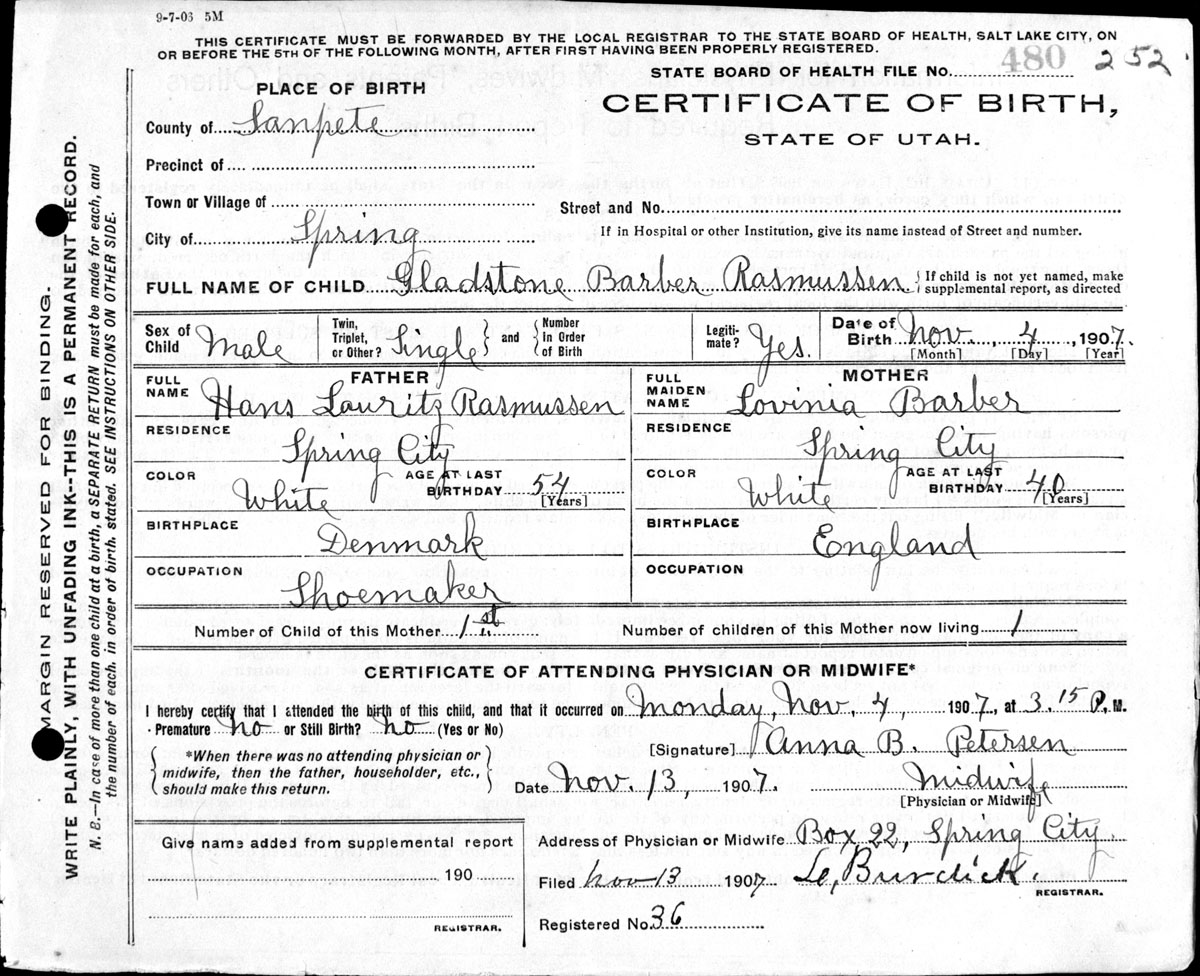 9-7-06 5M
THIS CERTIFICATE MUST BE FORWARDED BY THE LOCAL REGISTRAR TO THE STATE BOARD OF HEALTH, SALT LAKE CITY, ON
OR BEFORE THE 5TH OF THE FOLLOWING MONTH, AFTER FIRST HAVING BEEN PROPERLY REGISTERED.
STATE BOARD OF HEALTH FILE No. 480 252
PLACE OF BIRTH
CERTIFICATE OF BIRTH,
STATE OF UTAH.
County of Sanpete
Precinct of
Town or Village of
Street and No.
City of Spring
If in Hospital or other Institution, give its name instead of Street and number.
FULL NAME OF CHILD Gladstone Barber Rasmussen { If child is not yet named, make
supplemental report, as directed
Sex of Child Male
Twin, Triplet, or Other? Single } and { Number in Order of Birth
Legiti-mate? Yes.
Date of Birth Nov. 4, 1907.
[Month] [Day] [Year]
FATHER
FULL NAME Hans Lauritz Rasmussen
RESIDENCE Spring City
COLOR White AGE AT LAST BIRTHDAY 54 [Years]
BIRTHPLACE Denmark
OCCUPATION Shoemaker
MOTHER
FULL MAIDEN NAME Lovinia Barber
RESIDENCE Spring City
COLOR White AGE AT LAST BIRTHDAY 40 [Years]
BIRTHPLACE England
OCCUPATION
Number of Child of this Mother 1st Number of children of this Mother now living 1
CERTIFICATE OF ATTENDING PHYSICIAN OR MIDWIFE*
I hereby certify that I attended the birth of this child, and that it occurred on Monday, Nov. 4, 1907, at 3.15 P.M.
Premature No or Still Birth? No (Yes or No)
*When there was no attending physician or
midwife, then the father, householder, etc.,
should make this return.
[Signature] Anna B. Petersen
Date Nov. 13, 1907. Midwife
[Physician or Midwife]
Give name added from supplemental report
190
REGISTRAR.
Address of Physician or Midwife Box 22, Spring City.
Filed Nov 13 1907 Burdick.
REGISTRAR.
Registered No. 36
MARGIN RESERVED FOR BINDING.
WRITE PLAINLY, WITH UNFADING INK-THIS IS A PERMANENT RECORD.
N. B.—In case of more than one child at a birth, a SEPARATE RETURN must be made for each, and
the number of each, in order of birth, stated. SEE INSTRUCTIONS ON OTHER SIDE.